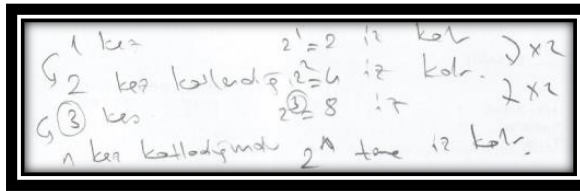 1 kez 2¹=2 iz kalır ) x2
2 kez katlandığı 2²=4 iz kalır. ) x2
3 kez 2³=8 iz
n kez katladığımda 2ⁿ tane iz kalır.